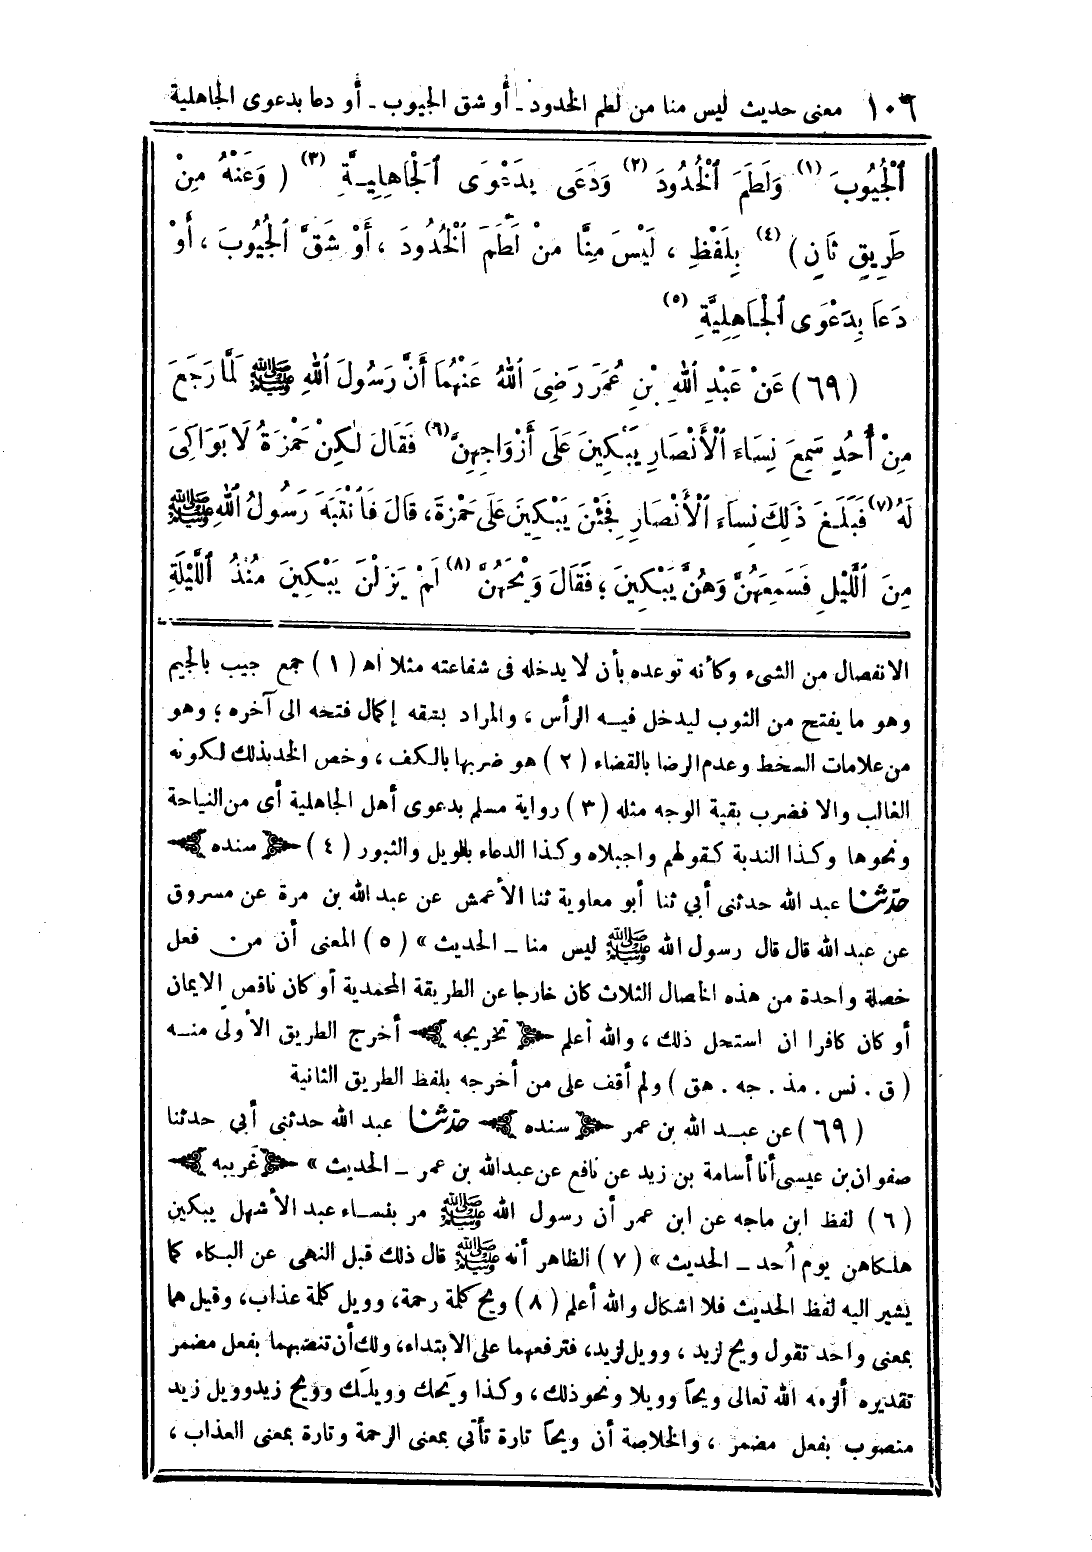 ١٠٦ معنى حديث ليس منا من لطم الخدود ـ أو شق الجيوب ـ أو دعا بدعوى الجاهلية
ٱلْجُيُوبَ (١) وَلَطَمَ ٱلْخُدُودَ (٢) وَدَعَى بِدَعْوَى ٱلْجَاهِلِيَّةِ (٣) ( وَعَنْهُ مِنْ
طَرِيقٍ ثَانٍ ) (٤) بِلَفْظِ ، لَيْسَ مِنَّا مَنْ لَطَمَ ٱلْخُدُودَ ، أَوْ شَقَّ ٱلْجُيُوبَ ، أَوْ
دَعَا بِدَعْوَى ٱلْجَاهِلِيَّةِ (٥)
(٦٩) عَنْ عَبْدِ ٱللهِ بْنِ عُمَرَ رَضِىَ ٱللهُ عَنْهُمَا أَنَّ رَسُولَ ٱللهِ ﷺ لَمَّا رَجَعَ
مِنْ أُحُدٍ سَمِعَ نِسَاءَ ٱلْأَنْصَارِ يَبْكِينَ عَلَى أَزْوَاجِهِنَّ (٦) فَقَالَ لَكِنْ حَمْزَةُ لَا بَوَاكِىَ
لَهُ (٧) فَبَلَغَ ذَلِكَ نِسَاءَ ٱلْأَنْصَارِ فَجِئْنَ يَبْكِينَ عَلَى حَمْزَةَ، قَالَ فَٱنْتَبَهَ رَسُولُ ٱللهِ ﷺ
مِنَ ٱللَّيْلِ فَسَمِعَهُنَّ وَهُنَّ يَبْكِينَ ؛ فَقَالَ وَيْحَهُنَّ (٨) لَمْ يَزَلْنَ يَبْكِينَ مُنْذُ ٱللَّيْلَةِ
الانفصال من الشىء وكأنه توعده بأن لا يدخله فى شفاعته مثلا اه (١) جمع جيب بالجيم
وهو ما يفتح من الثوب ليدخل فيه الرأس ، والمراد بشقه إكمال فتحه الى آخره ؛ وهو
من علامات السخط وعدم الرضا بالقضاء (٢) هو ضربها بالكف ، وخص الخد بذلك لكونه
الغالب والا فضرب بقية الوجه مثله (٣) رواية مسلم بدعوى أهل الجاهلية أى من النياحة
ونحوها وكذا الندبة كقولهم واجبلاه وكذا الدعاء بالويل والثبور (٤) ﴿ سنده ﴾
حدّثنا عبد الله حدثنى أبي ثنا أبو معاوية ثنا الأعمش عن عبد الله بن مرة عن مسروق
عن عبد الله قال قال رسول الله ﷺ ليس منا ـ الحديث » (٥) المعنى أن من فعل
خصلة واحدة من هذه الخصال الثلاث كان خارجا عن الطريقة المحمدية أو كان ناقص الايمان
أو كان كافرا ان استحل ذلك ، والله أعلم ﴿ تخريجه ﴾ أخرج الطريق الأولى منه
(ق . نس . مذ . جه . هق) ولم أقف على من أخرجه بلفظ الطريق الثانية
(٦٩) عن عبد الله بن عمر ﴿ سنده ﴾ حدّثنا عبد الله حدثنى أبي حدثنا
صفوان بن عيسى أنا أسامة بن زيد عن نافع عن عبد الله بن عمر ـ الحديث » ﴿ غريبه ﴾
(٦) لفظ ابن ماجه عن ابن عمر أن رسول الله ﷺ مر بنساء عبد الأشهل يبكين
هلكاهن يوم أحد ـ الحديث » (٧) الظاهر أنه ﷺ قال ذلك قبل النهى عن البكاء كما
يشير اليه لفظ الحديث فلا اشكال والله أعلم (٨) ويح كلمة رحمة، وويل كلمة عذاب، وقيل هما
بمعنى واحد تقول ويح لزيد ، وويل لزيد، فترفعهما على الابتداء، ولك أن تنصبهما بفعل مضمر
تقديره ألزمه الله تعالى ويحاً وويلا ونحو ذلك ، وكذا ويحك وويلك وويح زيد وويل زيد
منصوب بفعل مضمر ، والخلاصة أن ويحاً تارة تأتي بمعنى الرحمة وتارة بمعنى العذاب ،